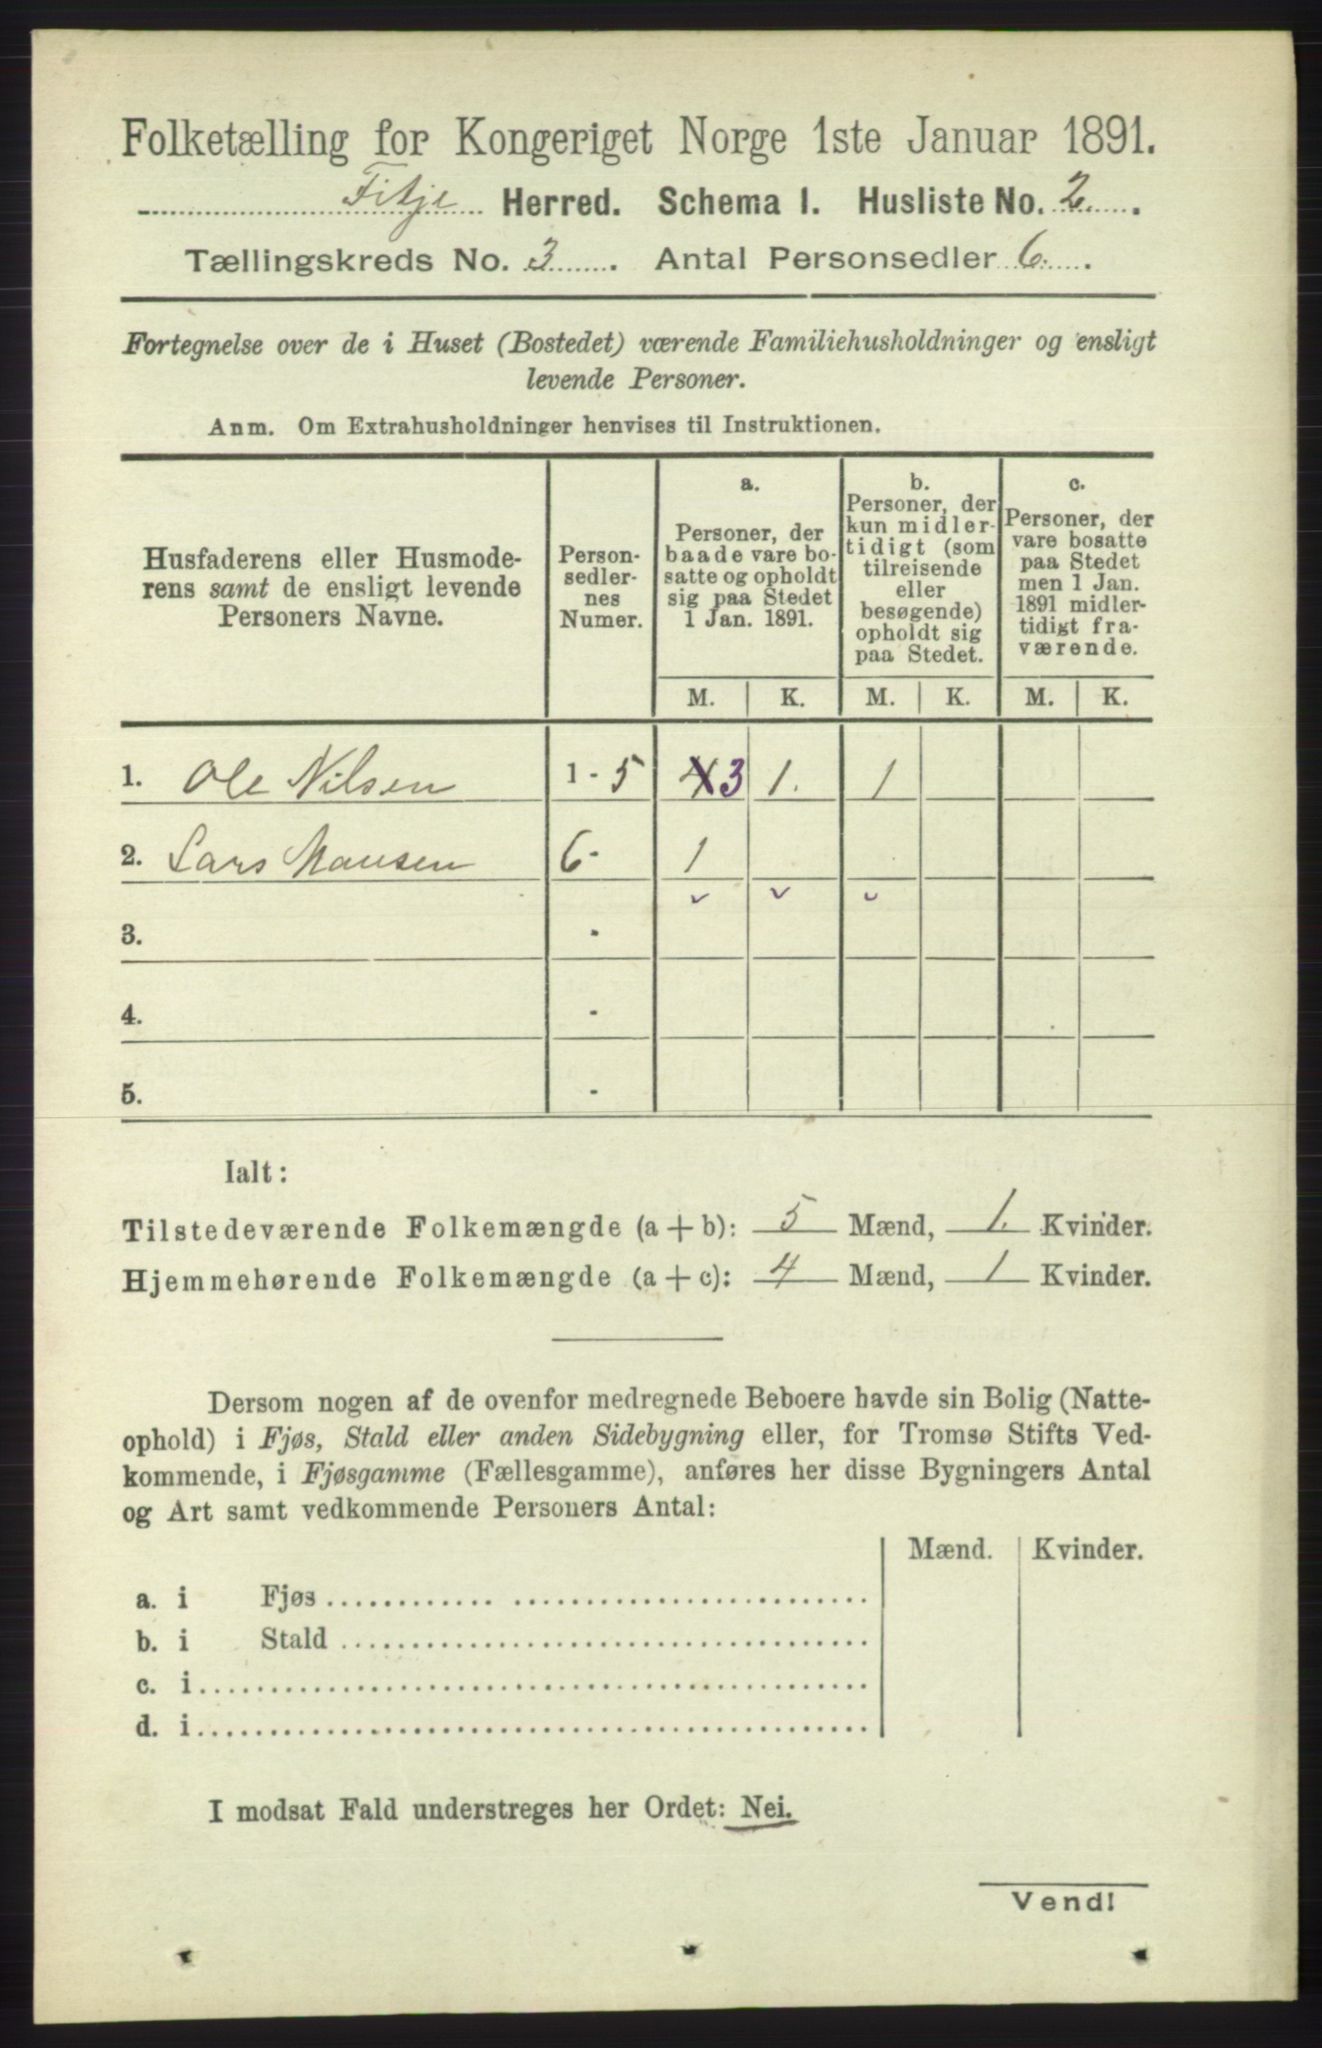 Folketælling for Kongeriget Norge 1ste Januar 1891.
Fitje Herred. Schema I. Husliste No. 2.
Tællingskreds No. 3. Antal Personsedler 6.
Fortegnelse over de i Huset (Bostedet) værende Familiehusholdninger og ensligt
levende Personer.
Anm. Om Extrahusholdninger henvises til Instruktionen.
Husfaderens eller Husmode-
rens samt de ensligt levende
Personers Navne.
Person-
sedler-
nes
Numer.
a.
Personer, der
baade vare bo-
satte og opholdt
sig paa Stedet
1 Jan. 1891.
b.
Personer, der
kun midler-
tidigt (som
tilreisende
eller
besøgende)
opholdt sig
paa Stedet.
c.
Personer, der
vare bosatte
paa Stedet
men 1 Jan.
1891 midler-
tidigt fra-
værende.
M. K. M. K. M. K.
1. Ole Nilsen 1 - 5 4 3 1. 1
2. Lars Mansen 6- 1
3. -
4. -
5. -
Ialt:
Tilstedeværende Folkemængde (a + b): 5 Mænd, 1. Kvinder.
Hjemmehørende Folkemængde (a + c): 4 Mænd, 1 Kvinder.
Dersom nogen af de ovenfor medregnede Beboere havde sin Bolig (Natte-
ophold) i Fjøs, Stald eller anden Sidebygning eller, for Tromsø Stifts Ved-
kommende, i Fjøsgamme (Fællesgamme), anføres her disse Bygningers Antal
og Art samt vedkommende Personers Antal:
Mænd. Kvinder.
a. i Fjøs
b. i Stald
c. i
d. i
I modsat Fald understreges her Ordet: Nei.
Vend!